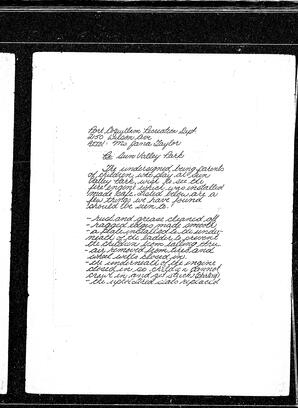 Port Coquitlam Recreation Dept
2150 Wilson Ave
Attn: Ms Jana Taylor
Re: Sun Valley Park
The undersigned being parents
of children who play at Sun
Valley Park, wish to see the
fire engine which was installed
made safe. Listed below are a
few things we have found
should be seen to:
- rust and grease cleaned off
- ragged edges made smooth
- a plate installed to the under-
neath of the ladder to prevent
the children from falling thru
- air removed from tires and
wheel wells closed in.
- the underneath of the engine
closed in so children cannot
crawl in and get stuck
- the upholstered seats replaced